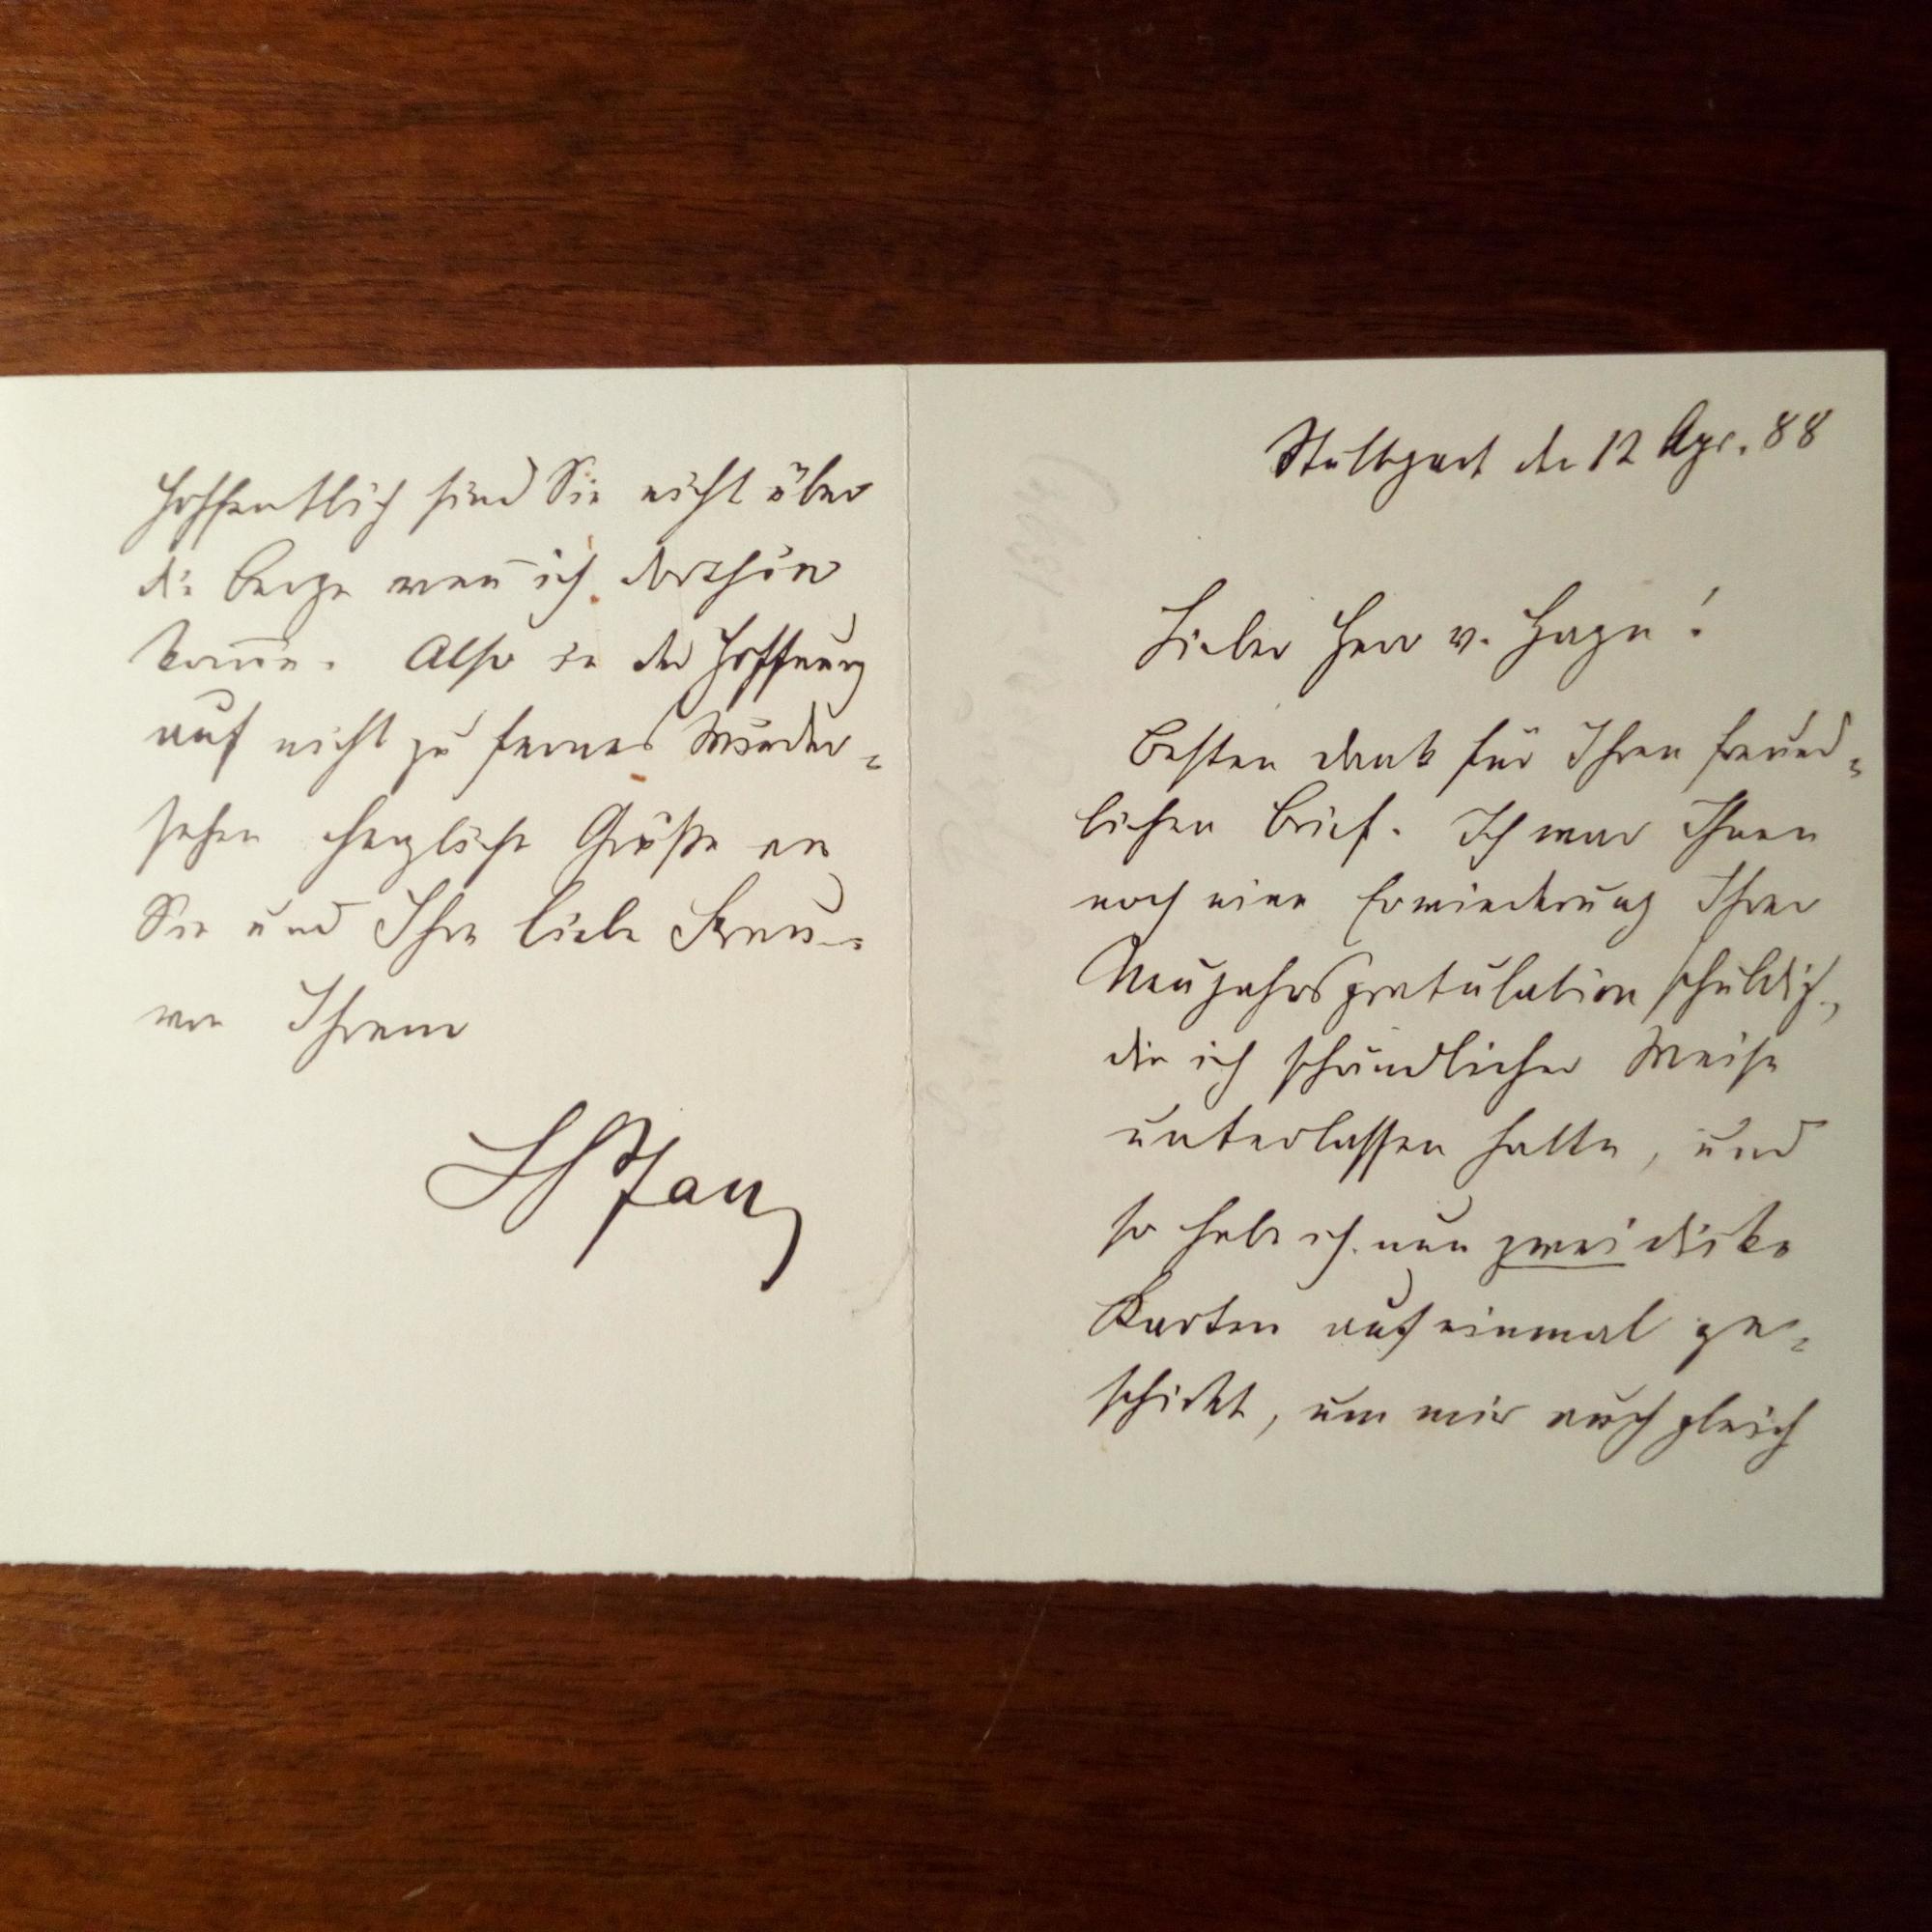 Stuttgart den 12 Apr. 88
Lieber Herr v. Hagn!
Besten Dank für Ihren freund-
lichen Brief. Ich war Ihnen
noch eine Erwiederung Ihrer
Neujahrsgratulation schuldig,
die ich schändlicher Weise
unterlassen hatte, und
so habe ich nun zwei dicke
Karten auf einmal ge-
schickt, um mir auch gleich
hoffentlich sind Sie nicht über
die Berge weñ ich dorthin
kom̄e. Also in der Hoffnung
auf nicht zu fernes Wieder-
sehen herzliche Grüße an
Sie und Ihre liebe Frau
von Ihrem